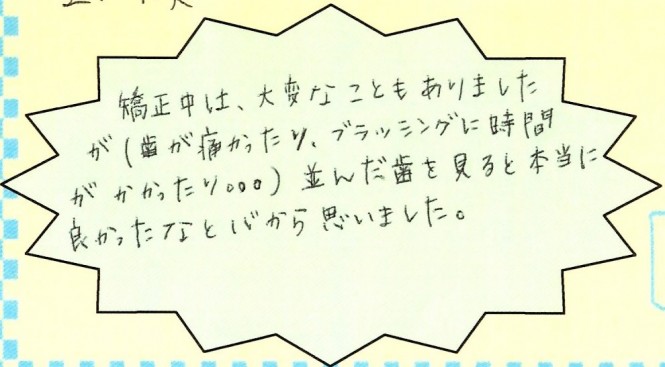 矯正中は、大変なこともありました
が(歯が痛かったり、ブラッシングに時間
がかかったり。。。)並んだ歯を見ると本当に
良かったなと心から思いました。